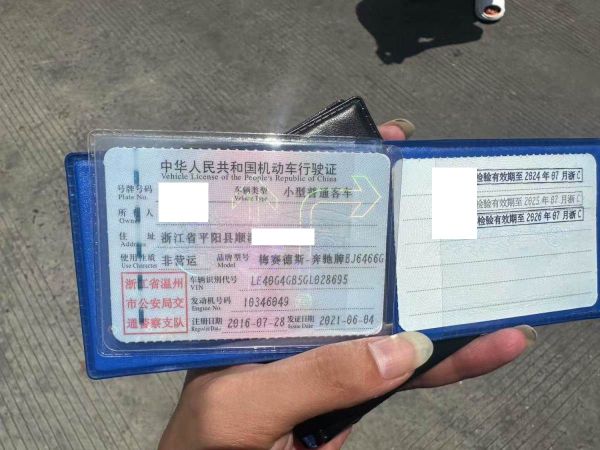 中华人民共和国机动车行驶证
Vehicle License of the People's Republic of China
号牌号码
Plate No.
车辆类型 小型普通客车
Vehicle Type
所有人
Owner
住址 浙江省平阳县顺
Address
使用性质 非营运
Use Character
品牌型号 梅赛德斯-奔驰牌BJ6466G
Model
浙江省温州
市公安局交
通警察支队
车辆识别代号 LE40G4GB5GL028695
VIN
发动机号码 10346049
Engine No.
注册日期 2016-07-28
Register Date
发证日期 2021-06-04
Issue Date
检验有效期至2024年07月浙C
检验有效期至2025年07月浙C
检验有效期至2026年07月浙C